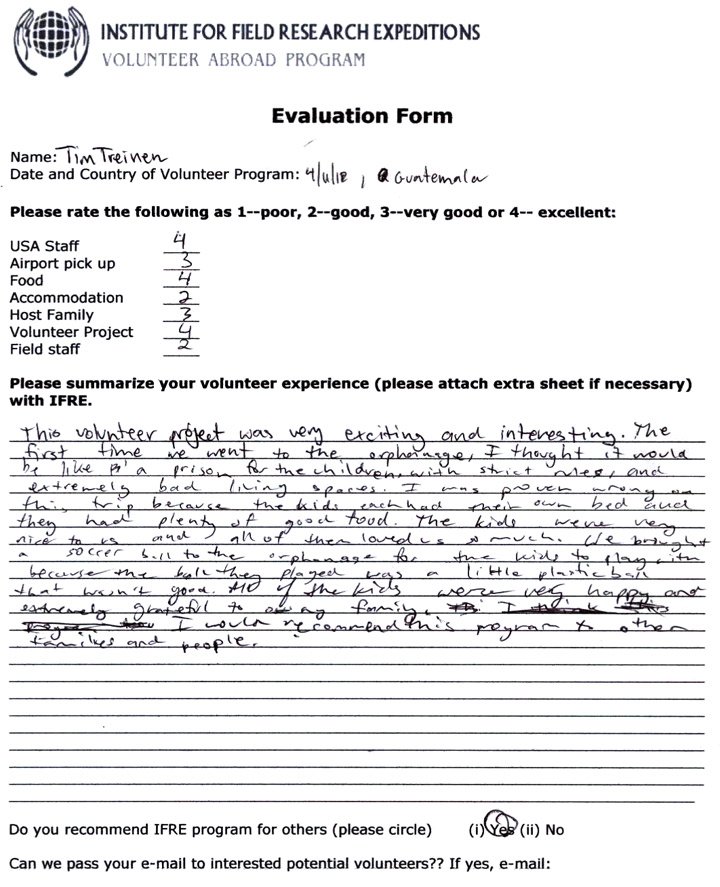 INSTITUTE FOR FIELD RESEARCH EXPEDITIONS
VOLUNTEER ABROAD PROGRAM
Evaluation Form
Name: Tim Treinen
Date and Country of Volunteer Program: , Guatemala
Please rate the following as 1--poor, 2--good, 3--very good or 4-- excellent:
USA Staff 4
Airport pick up 3
Food 4
Accommodation 2
Host Family 3
Volunteer Project 4
Field staff 2
Please summarize your volunteer experience (please attach extra sheet if necessary)
with IFRE.
This volunteer project was very exciting and interesting. The
first time we went to the orphanage, I thought it would
be like a prison for the children, with strict rules, and
extremely bad living spaces. I was proven wrong on
this trip because the kids each had their own bed and
they had plenty of good food. The kids were very
nice to us and all of them loved us so much. We brought
a soccer ball to the orphanage for the kids to play with
because the ball they played was a little plastic ball
that wasn't good. All of the kids were very happy and
extremely grateful to my family. I
I would recommend this program to other
families and people.
Do you recommend IFRE program for others (please circle) (i) Yes (ii) No
Can we pass your e-mail to interested potential volunteers?? If yes, e-mail: